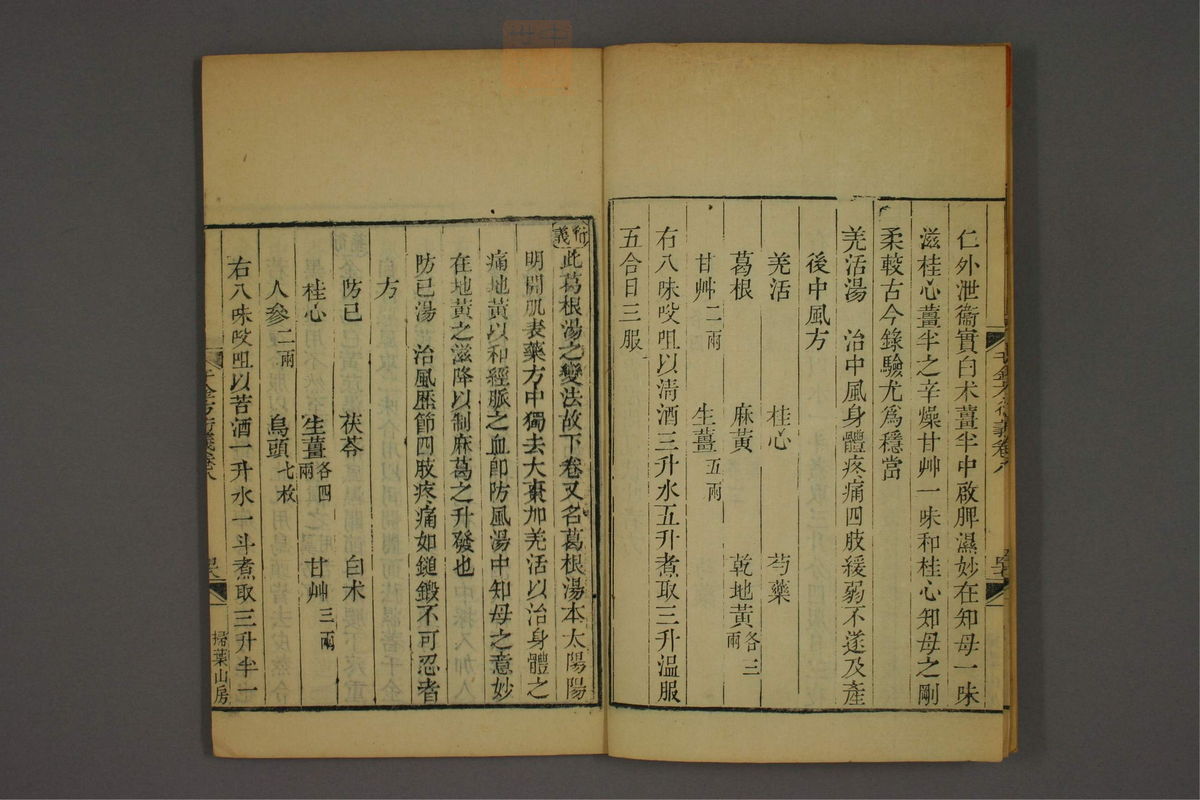 仁外泄衞實白术薑半中啟脾濕妙在知母一味
滋桂心薑半之辛燥甘艸一味和桂心知母之剛
柔較古今錄驗尤爲穩當
羌活湯　治中風身體疼痛四肢緩弱不遂及產
後中風方
羌活　桂心　芍藥
葛根　麻黃　乾地黃各三兩
甘艸二兩　生薑五兩
右八味㕮咀以清酒三升水五升煮取三升溫服
五合日三服
衍義
此葛根湯之變法故下卷又名葛根湯本太陽陽
明開肌表藥方中獨去大棗加羌活以治身體之
痛地黃以和經脈之血卽防風湯中知母之意妙
在地黃之滋降以制麻葛之升發也
防已湯　治風歷節四肢疼痛如鎚鍛不可忍者
方
防已　茯苓　白术
桂心　生薑各四兩　甘艸三兩
人參二兩　烏頭七枚
右八味㕮咀以苦酒一升水一斗煮取三升半一
千金方衍義卷八
掃葉山房